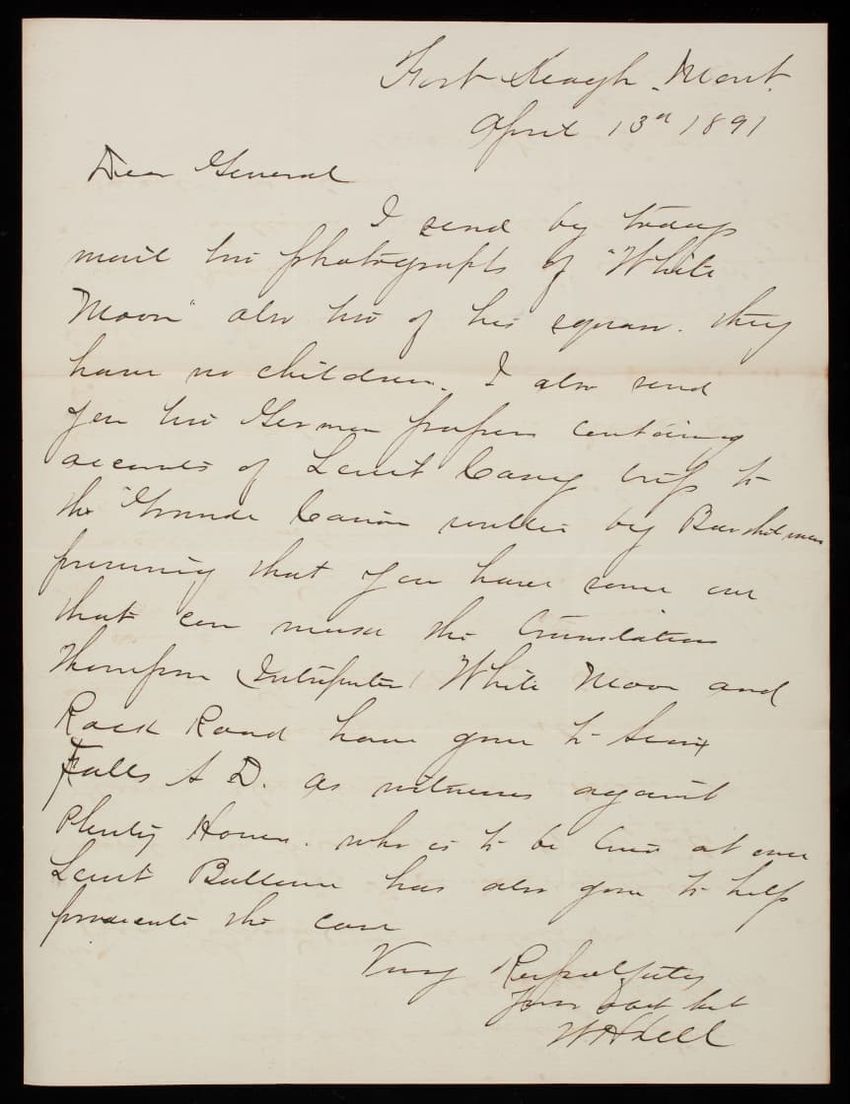 Fort Keogh, Mont.
April 13th 1891
Dear General
I send by todays
mail two photographs of "White
Moon" also two of his squaw. They
have no children. I also send
you two German papers containing
accounts of Lieut Casey trip to
the "Grande Canon written by
presuming that you have some one
that can make the translation
Thompson (Intrepeter) White Moon and
Rock Road have gone to Sioux
Falls S D. as witness against
Plenty Horses. who is to be tried at once
Lieut has also gone to help
prosecute the case
Very Respectfully
Your obdt Svt